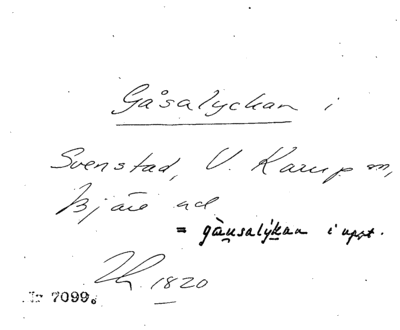 Gåsalyckan i
Svenstad, V. Karup sn,
Bjäre hd
= gàu̲salýk̲an i uppt.
1820
Nr 7099.